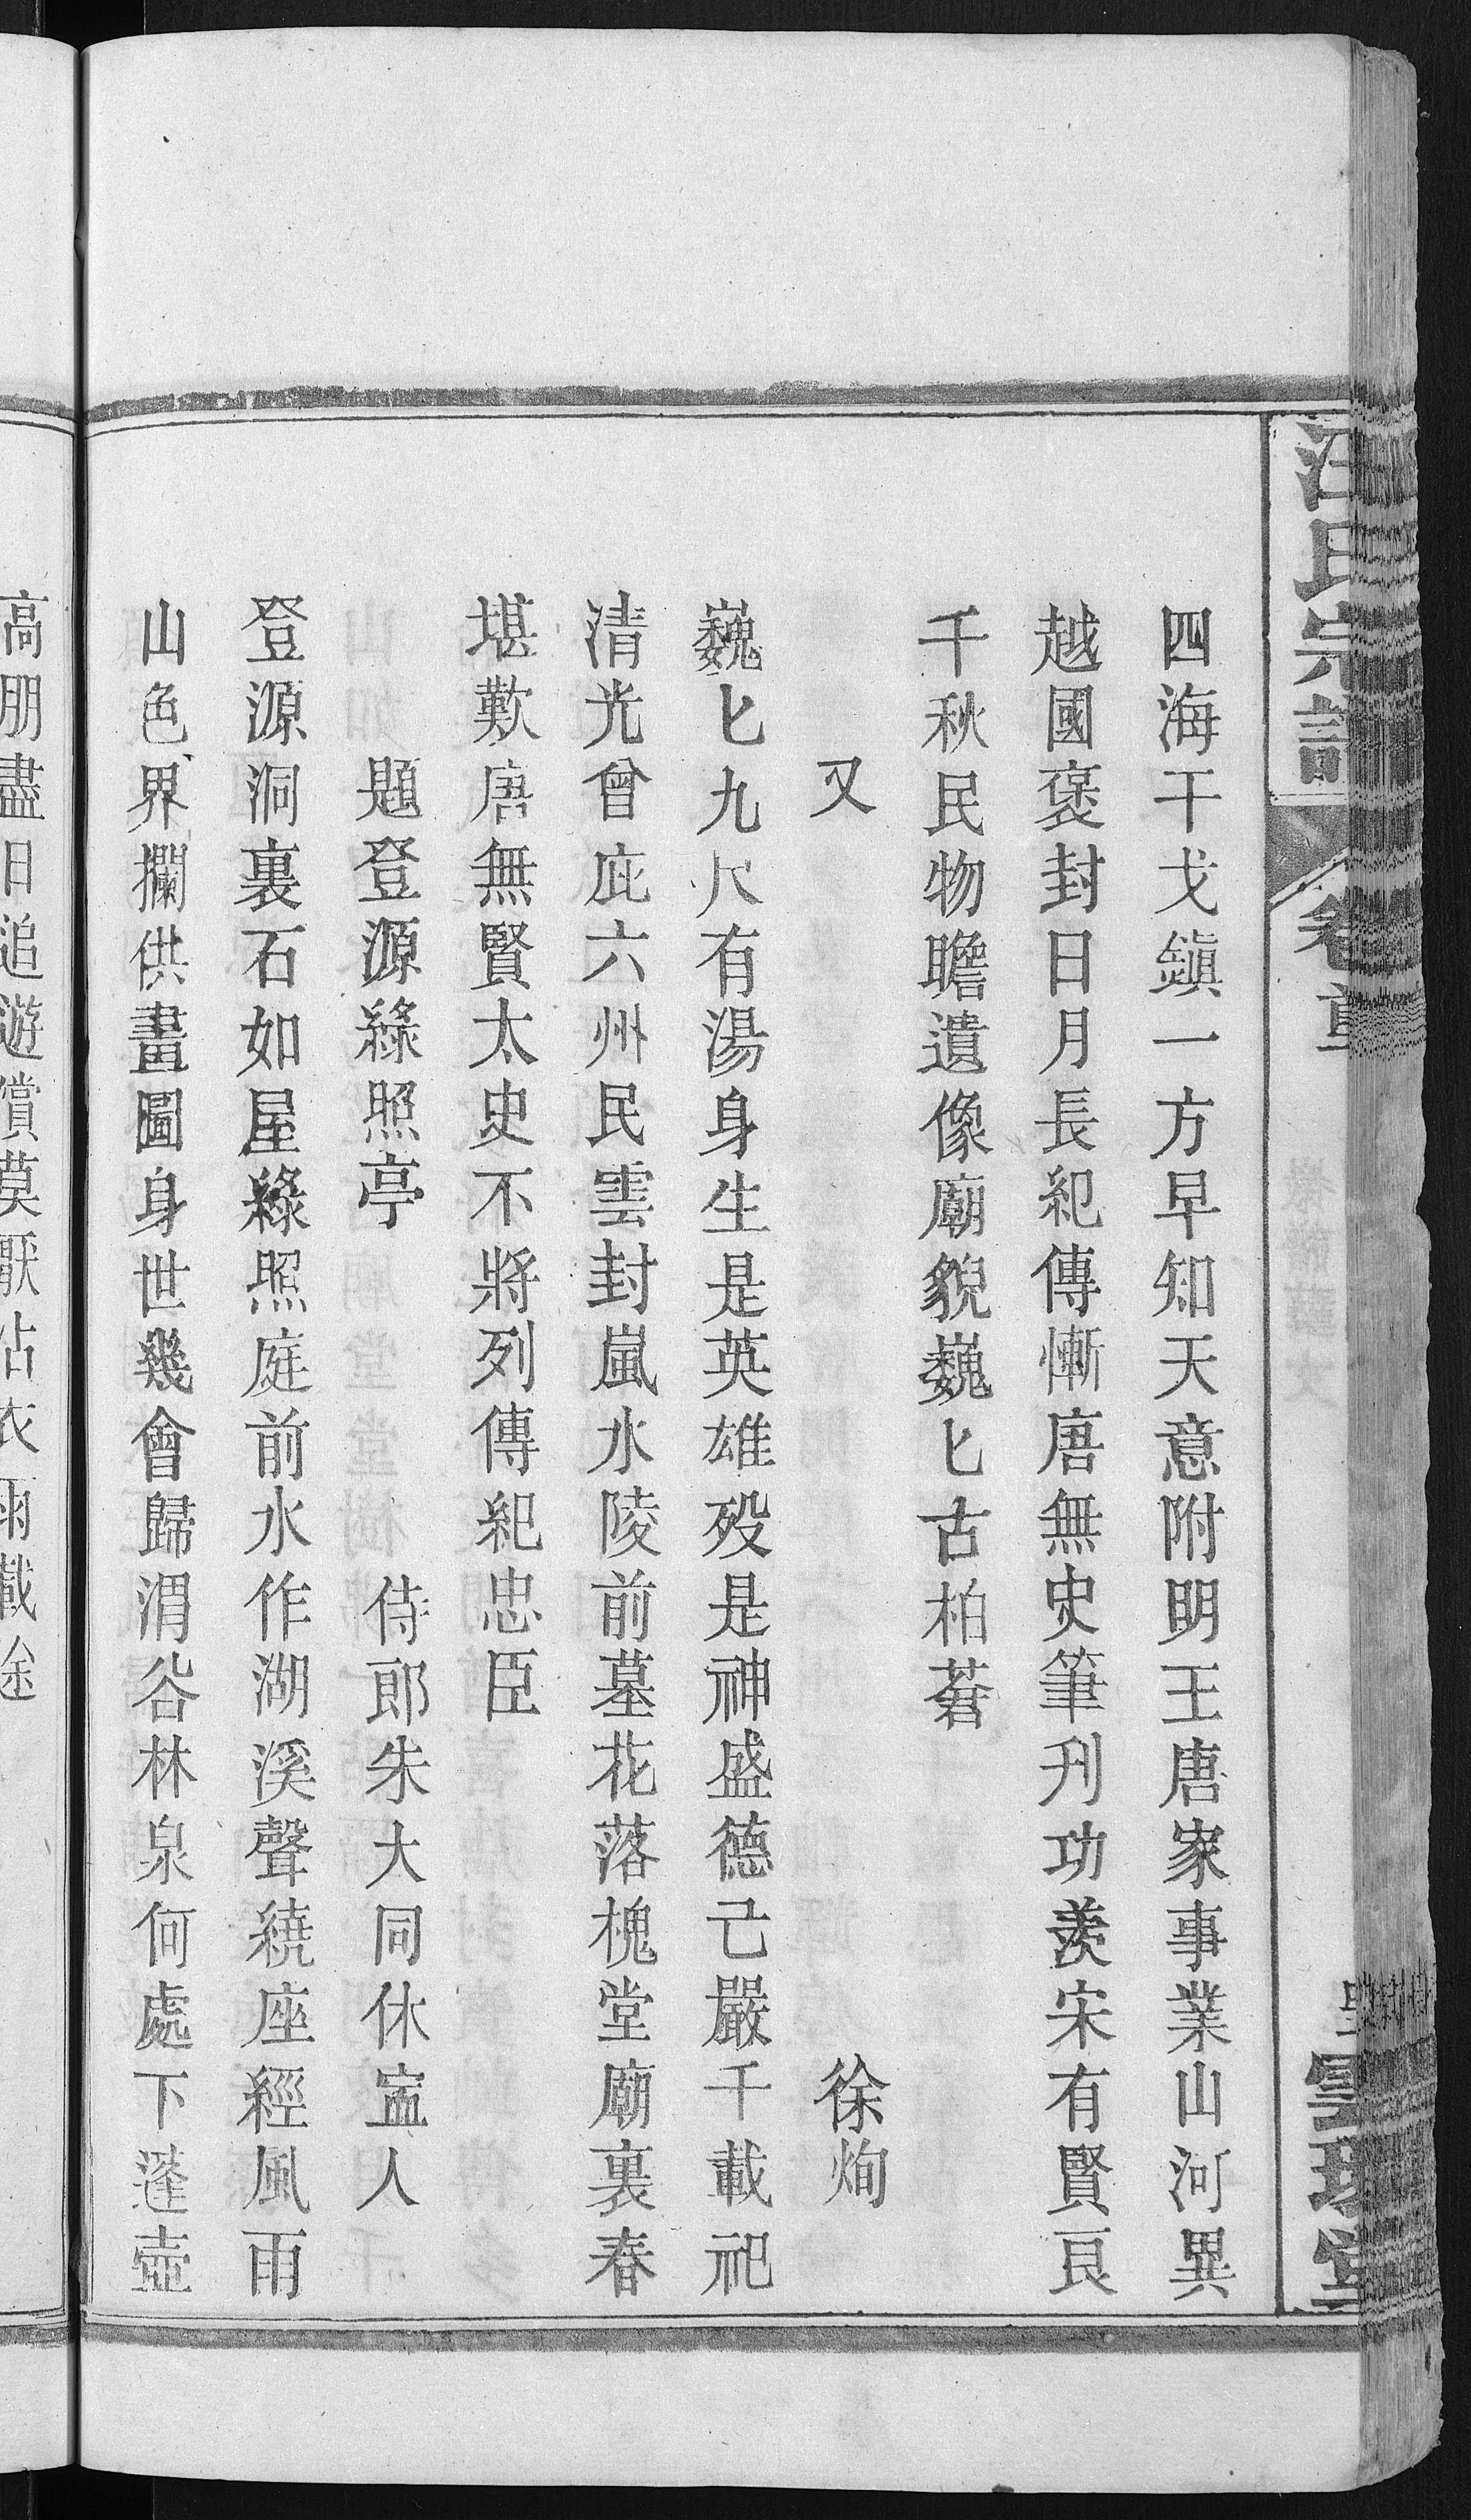 汪氏宗譜
四海干戈鎭一方早知天意附明王唐家事業山河異
越國褒封日月長紀傳慚唐無史筆刋功羨宋有賢良
千秋民物瞻遺像廟貌巍匕古柏蒼
又 徐炯
巍匕九尺有湯身生是英雄殁是神盛德已嚴千載祀
清光曾庇六州民雲封嵐水陵前墓花落槐堂廟裏春
堪歎唐無賢太史不將列傳紀忠臣
題登源綠照亭 侍郎朱大同休寍人
登源洞裏石如屋綠照庭前水作湖溪聲繞座經風雨
山色界攔供畫圖身世幾會歸渭谷林泉何處下蓬壺
高朋盡日追遊賞莫厭沾衣雨載途